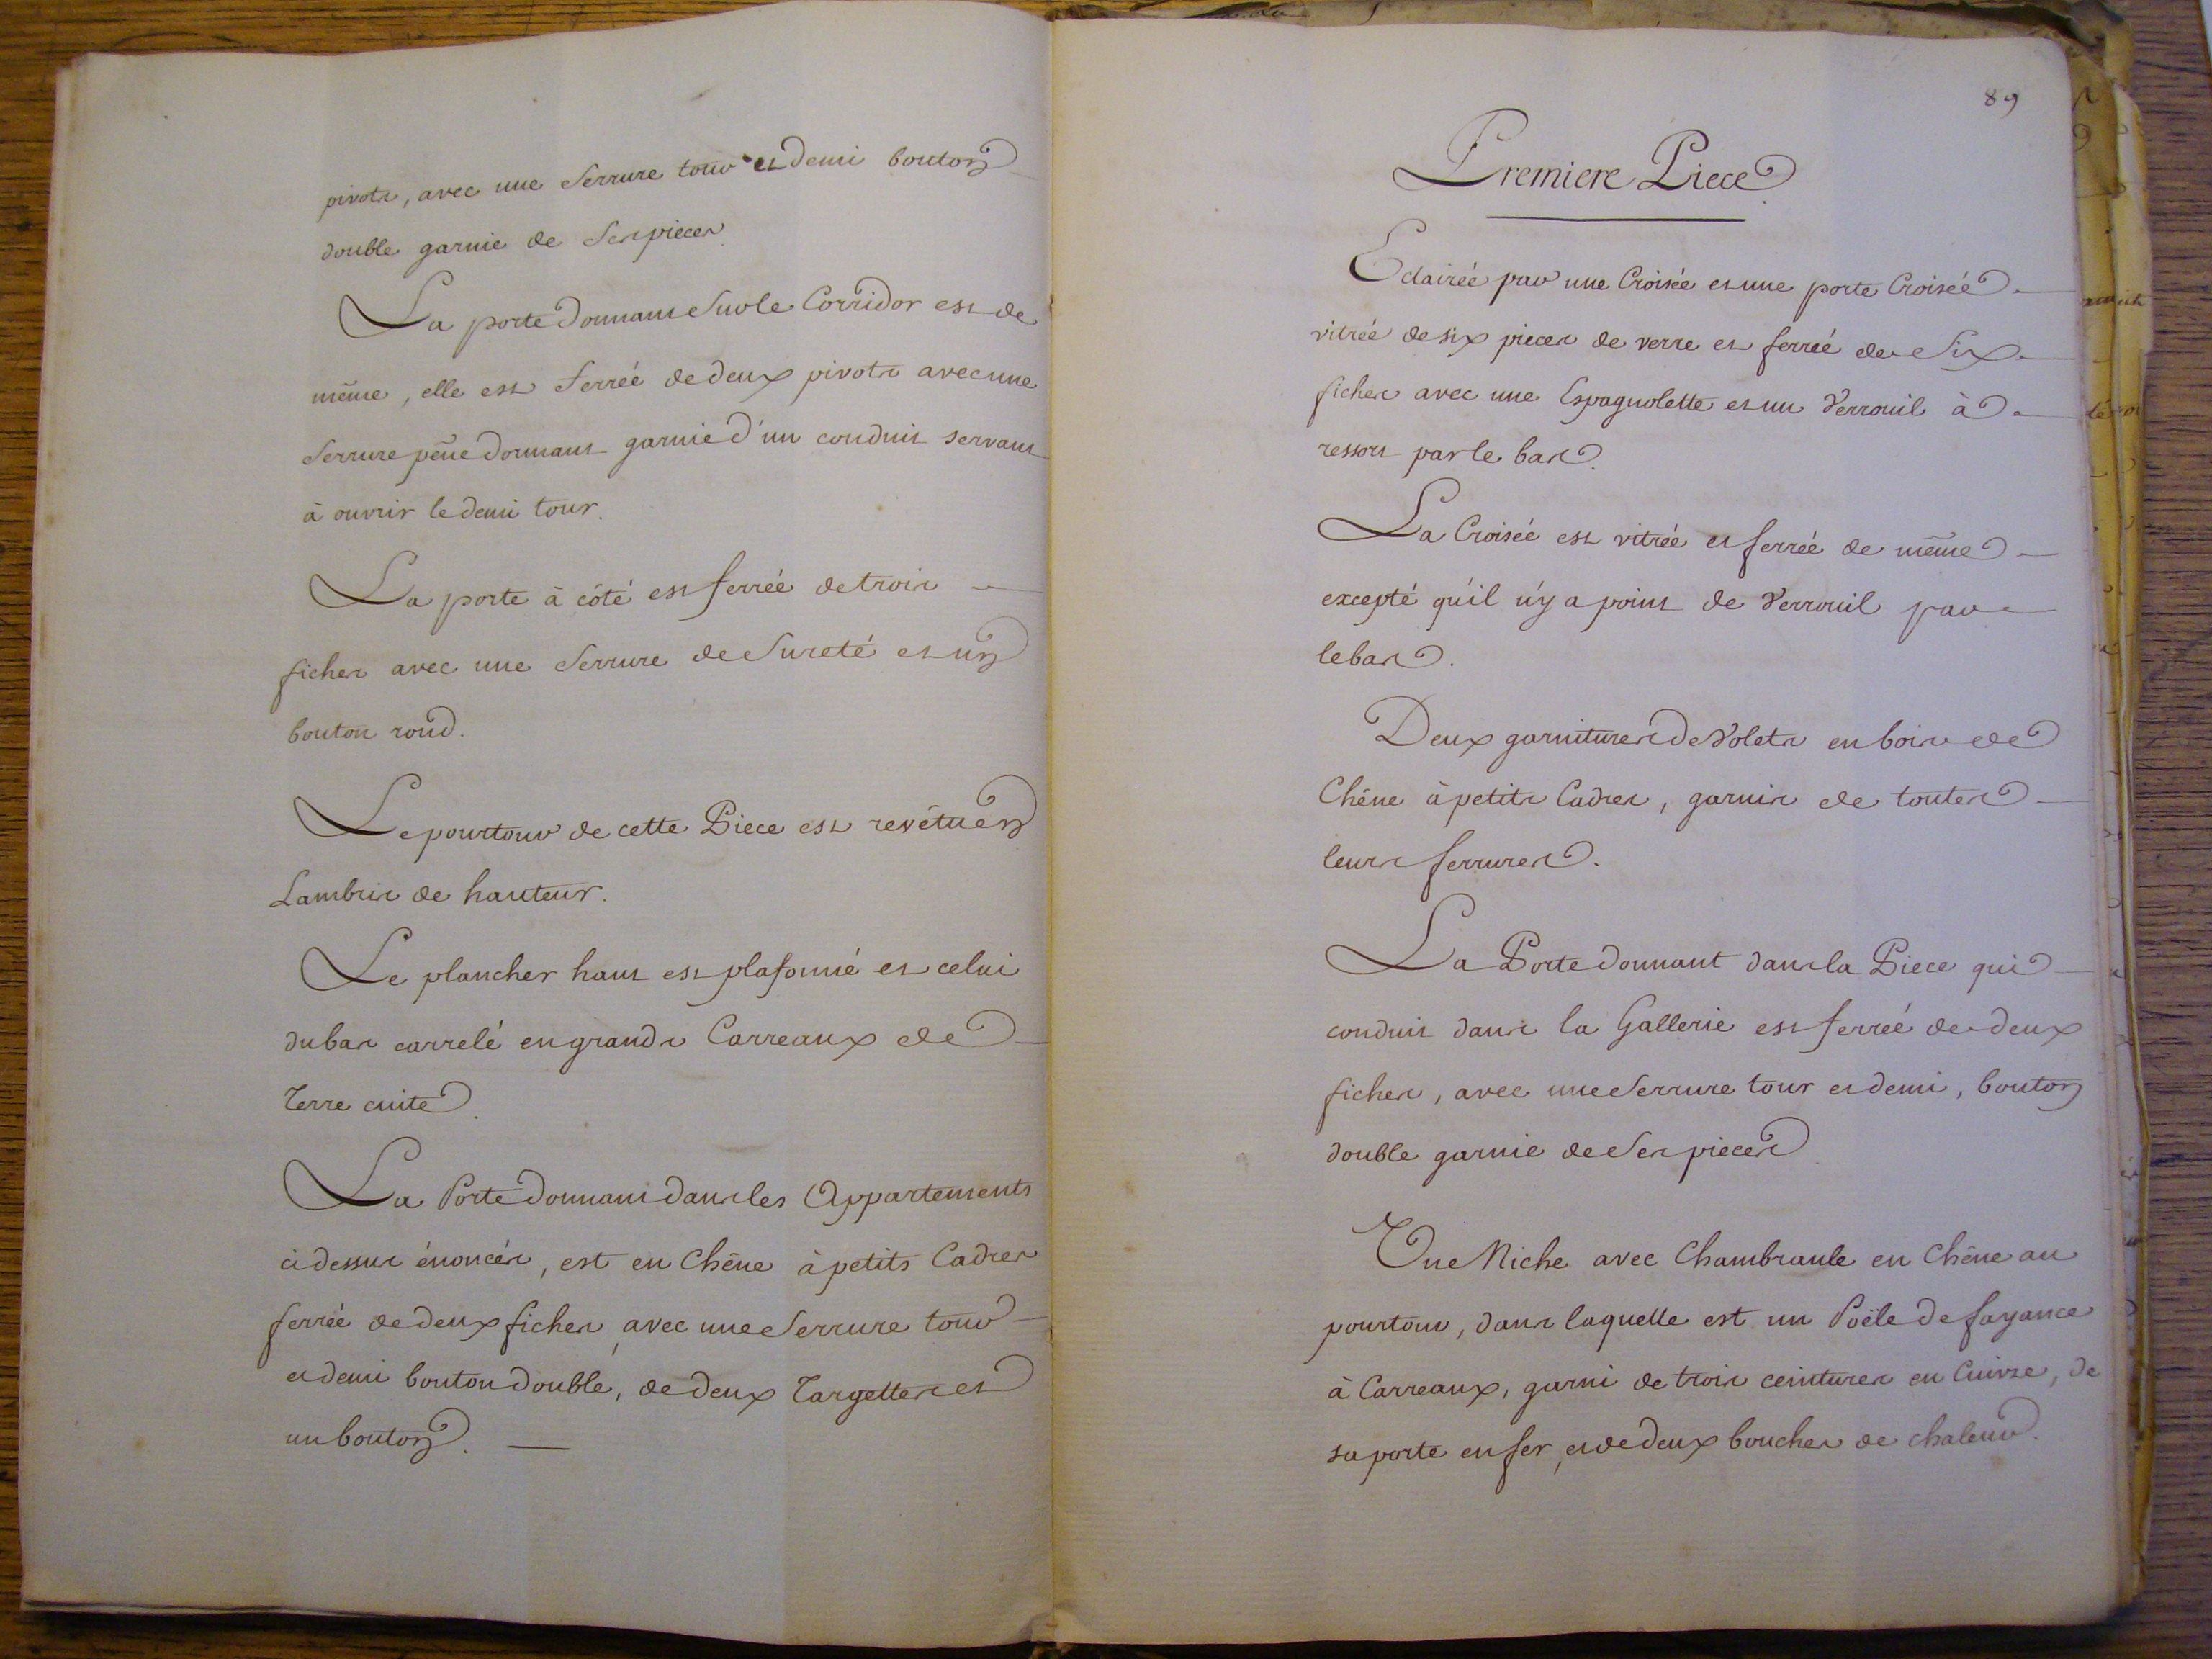 pivots, avec une Serrure tour et demi bouton
double garnie de Ses pieces
La porte donnant Sur le Corridor est de
même, elle est ferrée de deux pivots avec une
Serrure pêne dormant garnie d'un conduit servant
à ouvrir le demi tour.
La porte à côté est ferrée de trois
fiches avec une Serrure de Sureté et un
bouton rond.
Le pourtour de cette Piece est revêtu en
Lambris de hauteur.
Le plancher haut est plafonné et celui
du bas carrelé en grands Carreaux de
Terre cuite.
La Porte donnant dans les Appartements
ci dessus énoncés, est en Chêne à petits Cadres
ferrée de deux fiches, avec une Serrure tour
et demi bouton double, de deux Targettes et
un bouton. —
89
Premiere Piece
Eclairée par une Croisée et une porte Croisée
vitrée de six pieces de verre et ferrée de Six
fiches avec une Espagnolette et un Verrouil à
ressort par le bas.
La Croisée est vitrée et ferrée de même
excepté qu'il n'y a point de Verrouil par
le bas.
Deux garnitures de Volets en bois de
Chêne à petits Cadres, garnis de toutes
leurs ferrures.
La Porte donnant dans la Piece qui
conduit dans la Gallerie est ferrée de deux
fiches, avec une Serrure tour et demi, bouton
double garnie de Ses pieces
Une Niche avec Chambranle en Chêne au
pourtour, dans laquelle est un Poële de fayance
à Carreaux, garni de trois ceintures en Cuivre, de
sa porte en fer, et de deux bouches de chaleur.